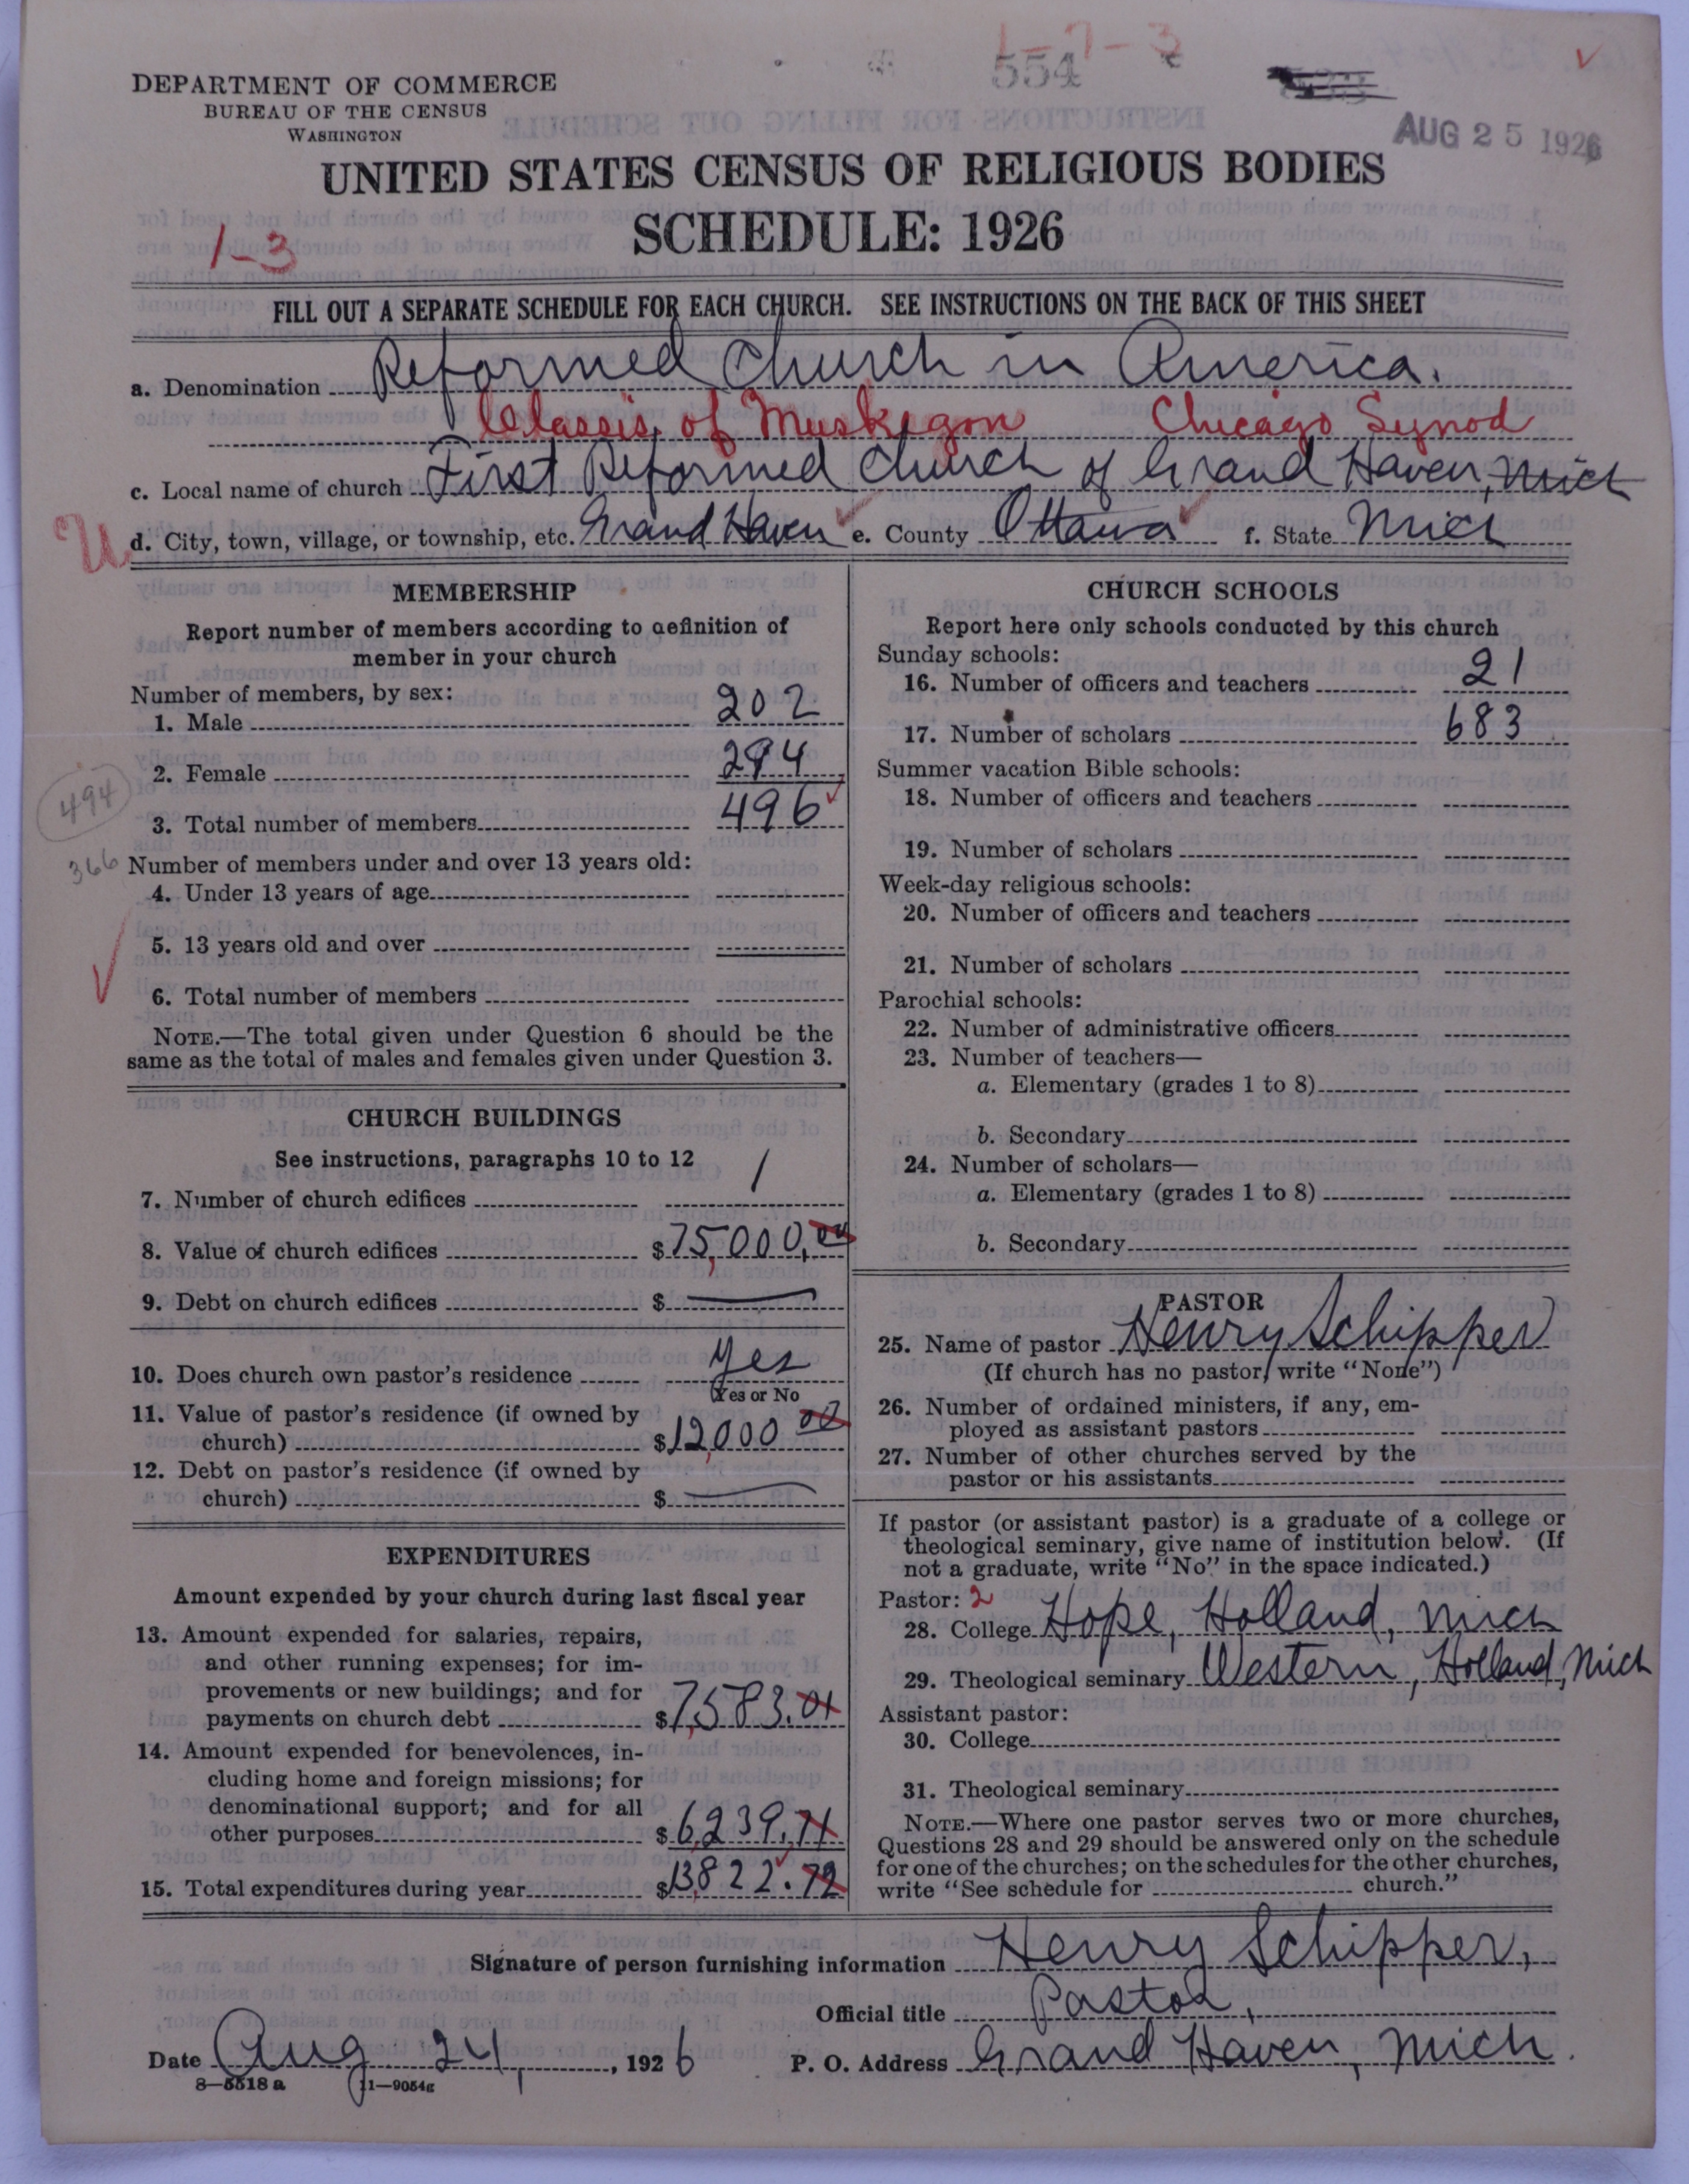 1-7-3
554
AUG 25 1926
DEPARTMENT OF COMMERCE
BUREAU OF THE CENSUS
WASHINGTON
UNITED STATES CENSUS OF RELIGIOUS BODIES
SCHEDULE: 1926
1-3
FILL OUT A SEPARATE SCHEDULE FOR EACH CHURCH. SEE INSTRUCTIONS ON THE BACK OF THIS SHEET
a. Denomination Reformed Church in America.
Classis of Muskegon Chicago Synod
c. Local name of church First Reformed Church of Grand Haven, Mich
U d. City, town, village, or township, etc. Grand Haven e. County Ottawa f. State Mich
MEMBERSHIP
Report number of members according to definition of
member in your church
Number of members, by sex:
1. Male 202
2. Female 294
494
3. Total number of members 496
366
Number of members under and over 13 years old:
4. Under 13 years of age
5. 13 years old and over
6. Total number of members
NOTE.—The total given under Question 6 should be the
same as the total of males and females given under Question 3.
CHURCH BUILDINGS
See instructions, paragraphs 10 to 12
7. Number of church edifices 1
8. Value of church edifices $75,000,00
9. Debt on church edifices $ —
10. Does church own pastor's residence Yes
(Yes or No
11. Value of pastor's residence (if owned by
church) $12,000 00
12. Debt on pastor's residence (if owned by
church) $ —
EXPENDITURES
Amount expended by your church during last fiscal year
13. Amount expended for salaries, repairs,
and other running expenses; for im-
provements or new buildings; and for
payments on church debt $7,583.01
14. Amount expended for benevolences, in-
cluding home and foreign missions; for
denominational support; and for all
other purposes $6,239,71
15. Total expenditures during year $13,822.72
CHURCH SCHOOLS
Report here only schools conducted by this church
Sunday schools:
16. Number of officers and teachers 21
17. Number of scholars 683
Summer vacation Bible schools:
18. Number of officers and teachers
19. Number of scholars
Week-day religious schools:
20. Number of officers and teachers
21. Number of scholars
Parochial schools:
22. Number of administrative officers
23. Number of teachers—
a. Elementary (grades 1 to 8)
b. Secondary
24. Number of scholars—
a. Elementary (grades 1 to 8)
b. Secondary
PASTOR
25. Name of pastor Henry Schipper
(If church has no pastor, write "None")
26. Number of ordained ministers, if any, em-
ployed as assistant pastors
27. Number of other churches served by the
pastor or his assistants
If pastor (or assistant pastor) is a graduate of a college or
theological seminary, give name of institution below. (If
not a graduate, write "No" in the space indicated.)
Pastor: 2
28. College Hope, Holland, Mich
29. Theological seminary Western, Holland, Mich
Assistant pastor:
30. College
31. Theological seminary
NOTE.—Where one pastor serves two or more churches,
Questions 28 and 29 should be answered only on the schedule
for one of the churches; on the schedules for the other churches,
write "See schedule for church."
Signature of person furnishing information Henry Schipper,
Official title Pastor,
Date Aug 24, 1926 P. O. Address Grand Haven, Mich.
8—5518 a 11—9054g